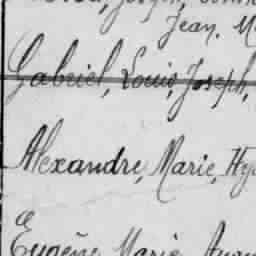 Jean, M
Gabriel, Louis, Joseph,
Alexandre, Marie, Hy
Eugène Marie